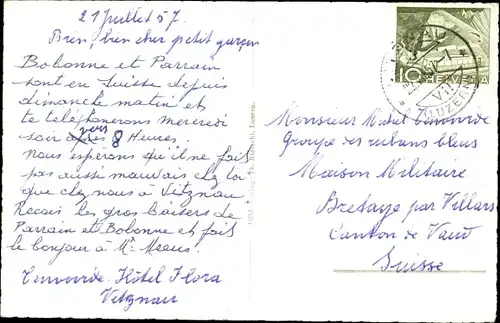 21 Juillet 57.
Bien, bien cher petit garçon
Bobonne et Parrain
sont en Suisse depuis
dimanche matin et
te téléphonerons mercredi
soir vers 8 Heures.
nous espérons qu'il ne fait
pas aussi mauvais chez toi
que chez nous à Vitznau
Recois les gros baisers de
Parrain et Bobonne et fait
le bonjour à Mr
Hôtel Flora
Vitznau
10 HELVETIA
(LUZERN)
Monsieur Michel
Groupe des rubans bleus
Maison Militaire
Bretaye par Villars
Canton de Vaud
Suisse